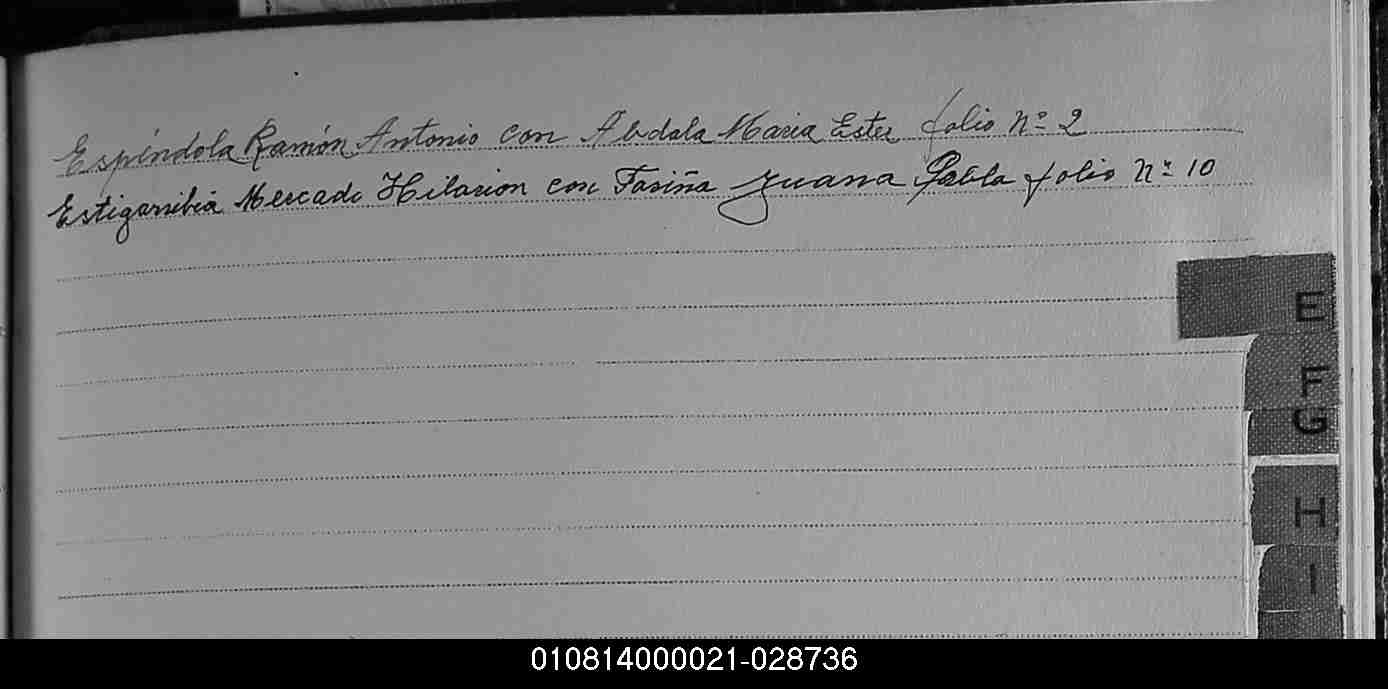 Espíndola Ramón Antonio con Abdala Maria Ester folio Nº 2
Estigarribia Mercado Hilarion con Fariña Juana Pabla folio Nº 10
E
F
G
H
I
010814000021-028736